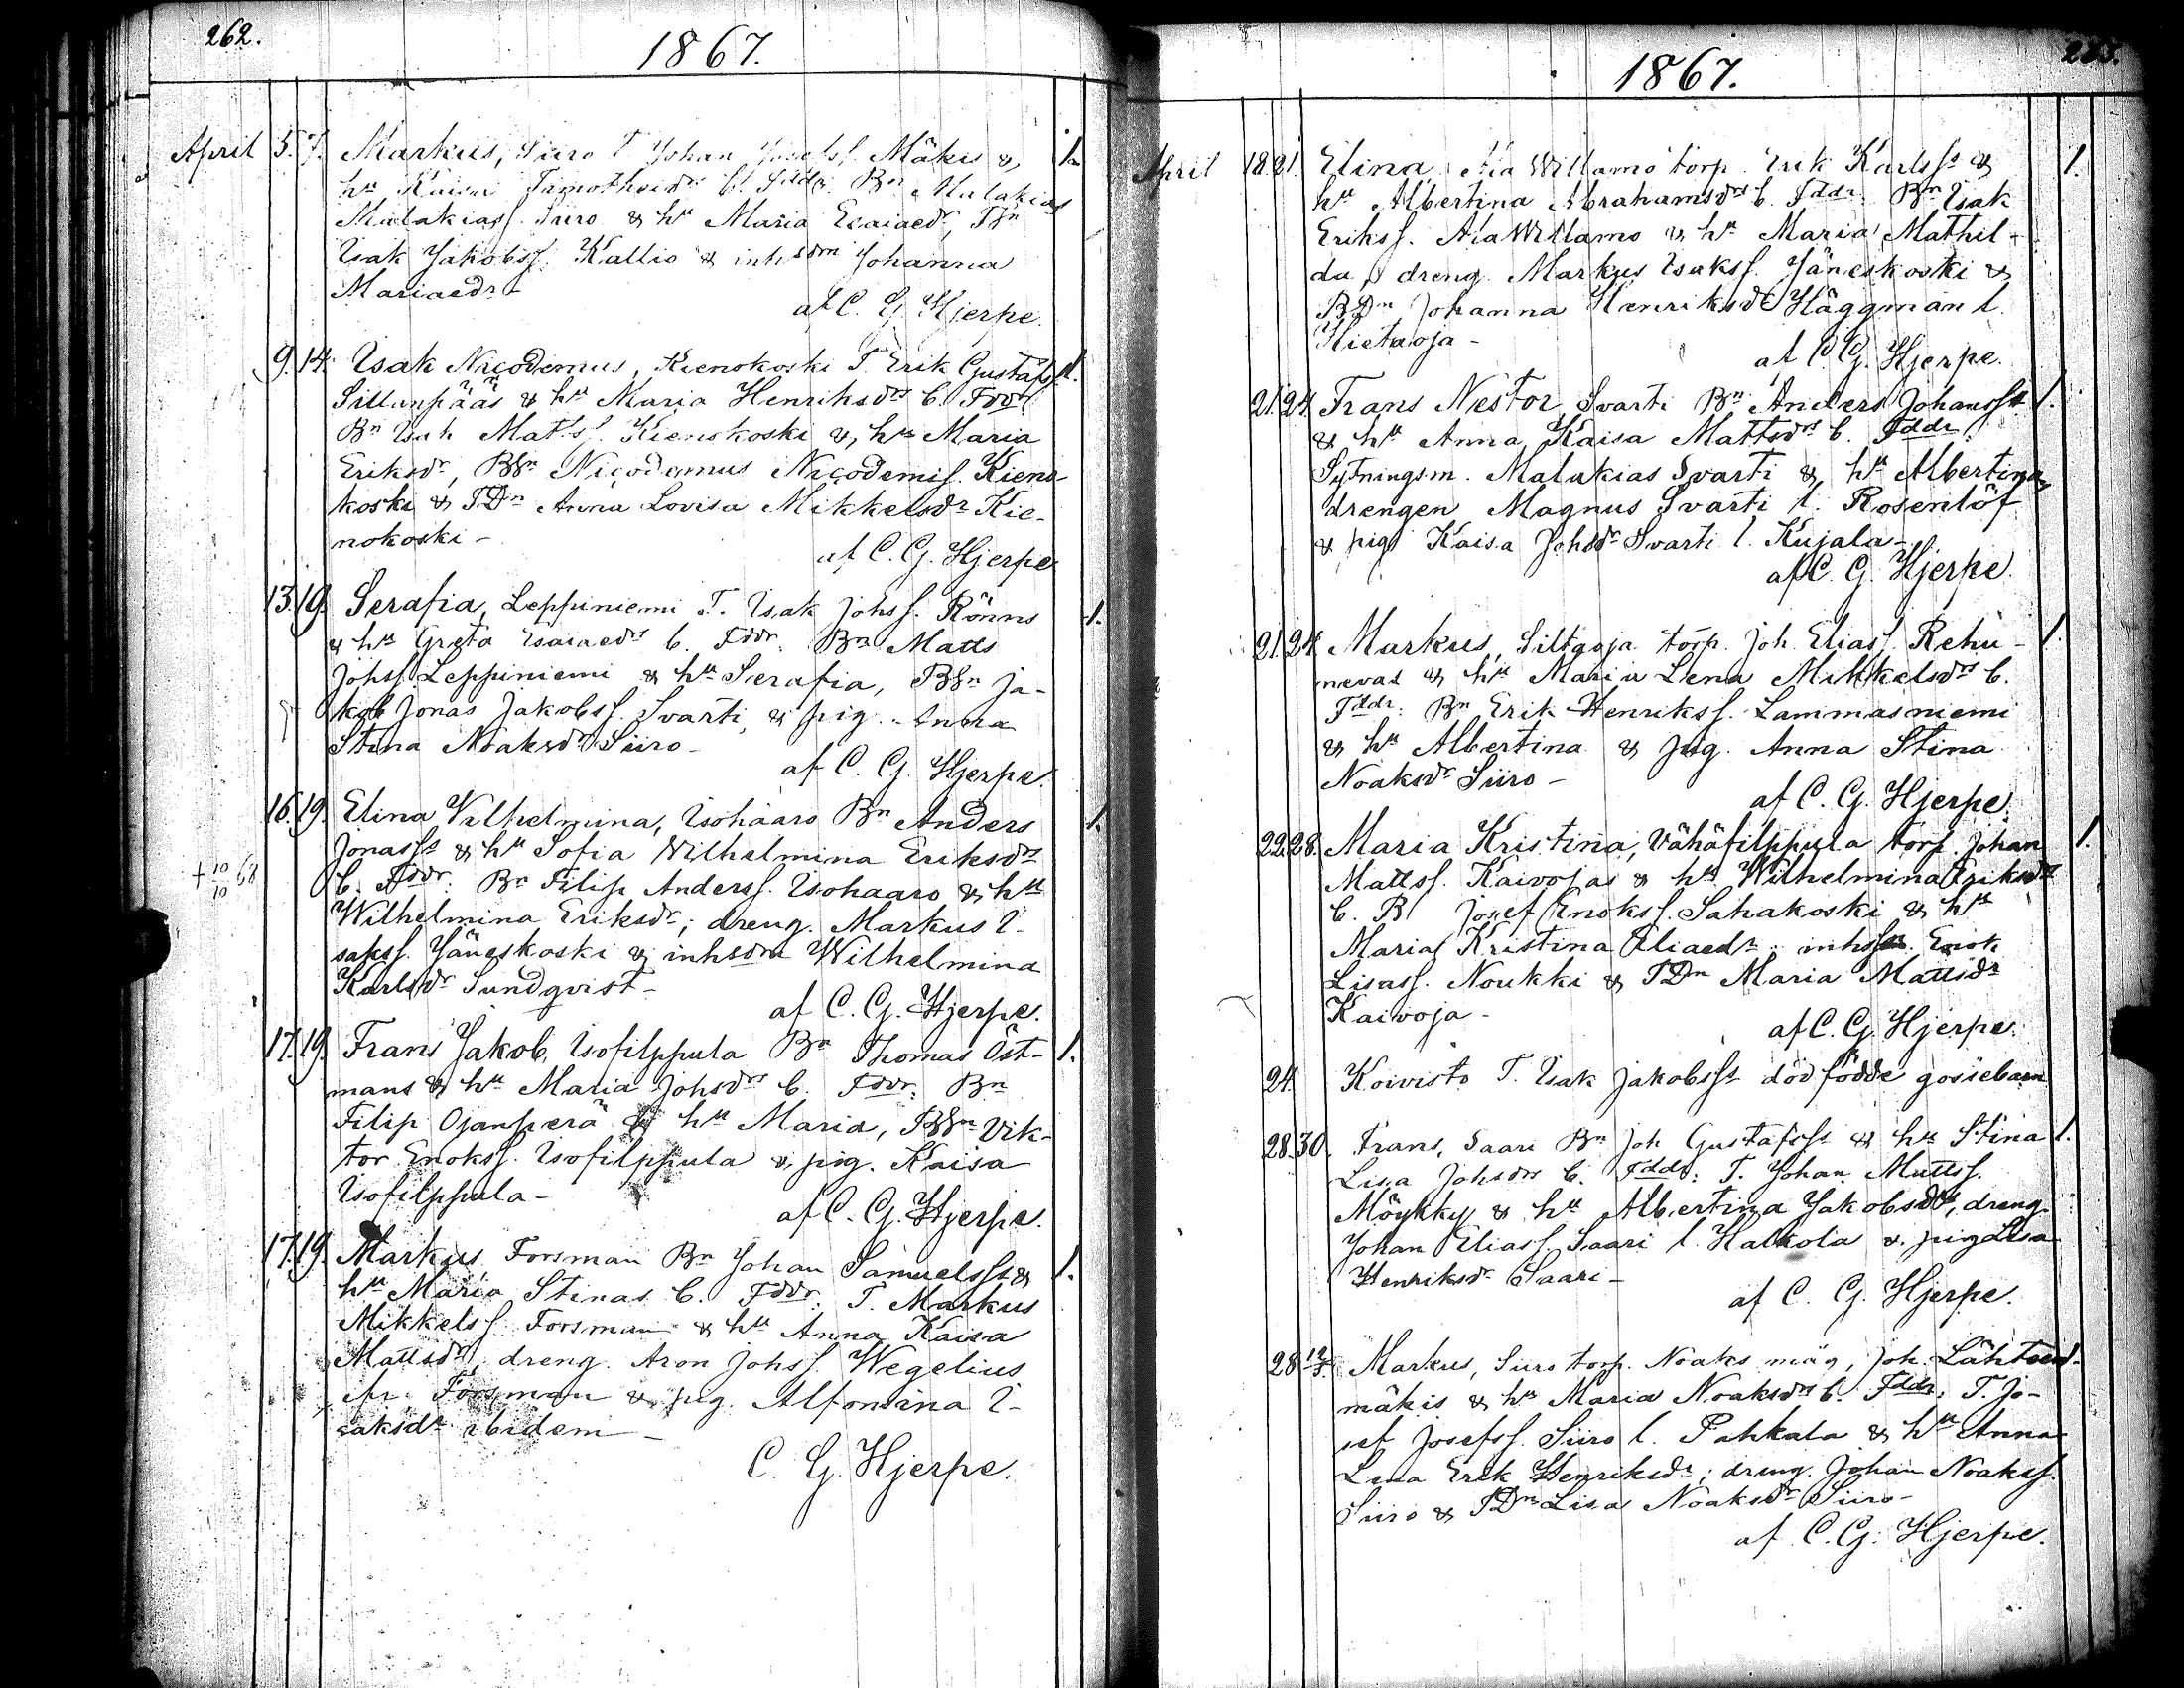 262.
1867.
April 5. 7. Markus, Siiro T Johan Josefss. Mäkis & 1.
hu Kaisa Timotheidrs b. Fddr. Bn Malakias
Malakiass. Siiro & hu Maria Esaiaedr, TSn
Isak Jakobss. Kallio & inhsdm Johanna
Mariaedr -
af C. G. Hjerpe.
9. 14. Isak Nicodemus, Kienokoski T. Erik Gustafss 1.
Sillanpääs & hu Maria Henriksdrs b. Fddr
Bn Isak Matss. Kienokoski &, hu Maria
Eriksdr, BSn Nicodemus Nicodemiss. Kieno-
koski & TDn Anna Lovisa Mikkelsdr Kie-
nokoski -
af C. G. Hjerpe
13. 19. Serafia, Leppiniemi T. Isak Johss. Rönns 1.
& hu Greta Esaiaedrs b. Fddr. Bn Matts
Johss. Leppiniemi & hu Serafia, BSn Ja-
kob Jonas Jakobss. Svarti, & pig. Anna
Stina Noaksdr Siiro -
af C. G. Hjerpe.
16. 19. Elina Vilhelmina, Isohaaro Bn Anders 1.
Jonasss & hu Sofia Wilhelmina Eriksdrs
+ 10/10 68
b. Fddr: Bn Filip Anderss. Isohaaro & hu
Wilhelmina Eriksdr; dreng. Markus I-
sakss. Jäneskoski & inhsdm Wilhelmina
Karlsdr Sundqvist -
af C. G. Hjerpe.
17. 19. Frans Jakob, Isofilppula Bn Thomas Öst- 1.
mans & hu Maria Johsdrs b. Fddr: Bn
Filip Ojanperä & hu Maria, BSn Vik-
tor Enokss. Isofilppula & pig. Kaisa
Isofilppula -
af C. G. Hjerpe.
17. 19. Markus Forsman Bn Johan Samuelsss & 1.
hu Maria Stinas b. Fddr: T. Markus
Mikkelss. Forsman & hu Anna Kaisa
Mattsdr, dreng. Aron Johss. Wegelius
Forsman & pig. Alfonsina I-
saksdr ibidem -
C. G. Hjerpe.
1867.
April 18. 21. Elina Ala Willamo torp. Erik Karlsss & 1.
hu Albertina Abrahamsdrs b. Fddr: Bn Isak
Erikss. Ala Willamo & hu Maria Mathil-
da, dreng. Markus Isakss. Jäneskoski &
BDn Johanna Henriksdr Häggman l.
Hietaoja -
af C. G. Hjerpe.
21. 24. Frans Nestor, Svarti Bn Anders Johansss 1.
& hu Anna Kaisa Mattsdrs b. Fddr:
Sytningsm. Malakias Svarti & hu Albertina,
drengen Magnus Svarti l. Rosenlöf
& pig Kaisa Johsdr Svarti l. Kujala -
af C. G. Hjerpe.
21. 24. Markus, Siltaoja torp. Joh. Eliass. Rehu- 1.
nevas & hu Maria Lena Mikkelsdrs b.
Fddr: Bn Erik Henrikss. Lammasniemi
& hu Albertina & pig. Anna Stina
Noaksdr Siiro -
af C. G. Hjerpe.
22. 28. Maria Kristina, Vähäfilppula torp. Johan 1.
Mattss. Kaivojas & hu Wilhelmina Eriksdrs
b. B Josef Enokss. Sahakoski & hu
Maria Kristina Eliaedr inhsm Enok
Lisass. Noukki & TDn Maria Mattsdr
Kaivoja -
af C. G. Hjerpe.
24. Koivisto T. Isak Jakobsss död födde gossebarn
28. 30. Frans, Saari Bn Joh Gustafsss & hu Stina 1.
Lisa Johsdrs b. Fddr: T. Johan Mattss.
Möykky & hu Albertina Jakobsdr, dreng.
Johan Eliass. Saari l. Halkola & pig Lisa
Henriksdr Saari -
af C. G. Hjerpe.
28 12/5. Markus, Siiro torp. Noaks måg, Joh. Lähteen-
mäkis & hu Maria Noaksdrs b. Fddr: T. Jo-
sef Josefss. Siiro l. Pahkala & hu Anna
Lena Erik Henriksdr; dreng. Johan Noakss.
Siiro & TDn Lisa Noaksdr Siiro -
af C. G. Hjerpe.